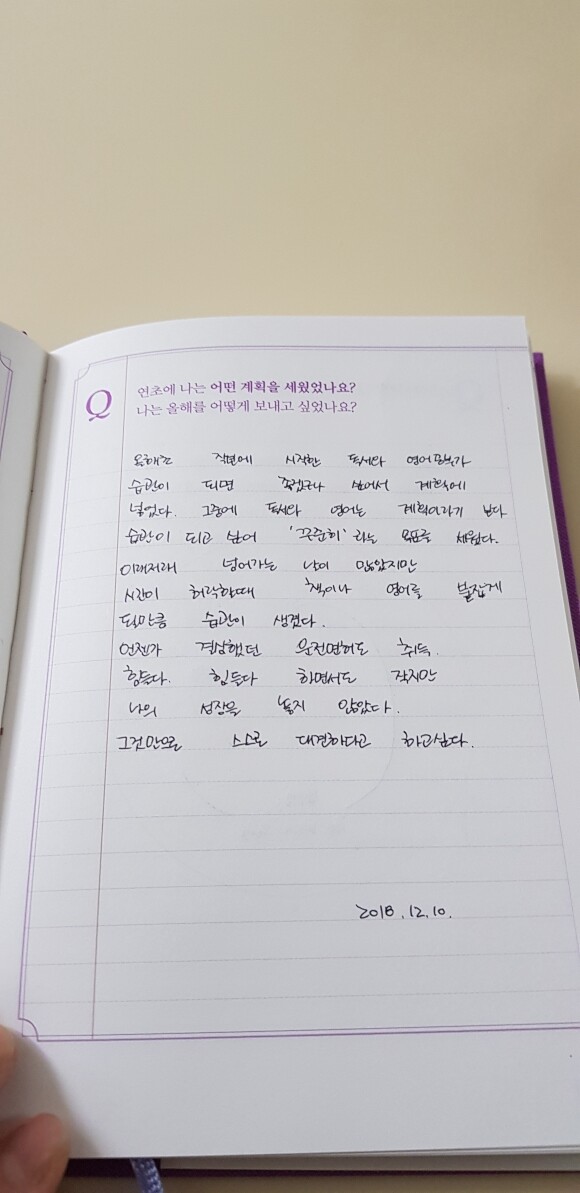 Q
연초에 나는 어떤 계획을 세웠었나요?
나는 올해를 어떻게 보내고 싶었나요?
올해초 직전에 시작한 독서와 영어공부가
습관이 되면 좋겠구나 싶어서 계획에
넣었다. 그중에 독서와 영어는 계획이라기 보다
습관이 되고 싶어 '꾸준히' 라는 목표를 세웠다.
이래저래 넘어가는 날이 많았지만
시간이 허락할때 책이나 영어를 붙잡게
되만큼 습관이 생겼다.
언젠가 결심했던 운전면허도 취득.
힘들다. 힘들다 하면서도 작지만
나의 성장을 놓지 않았다.
그것만으로 스스로 대견하다고 하고싶다.
2018.12.10.